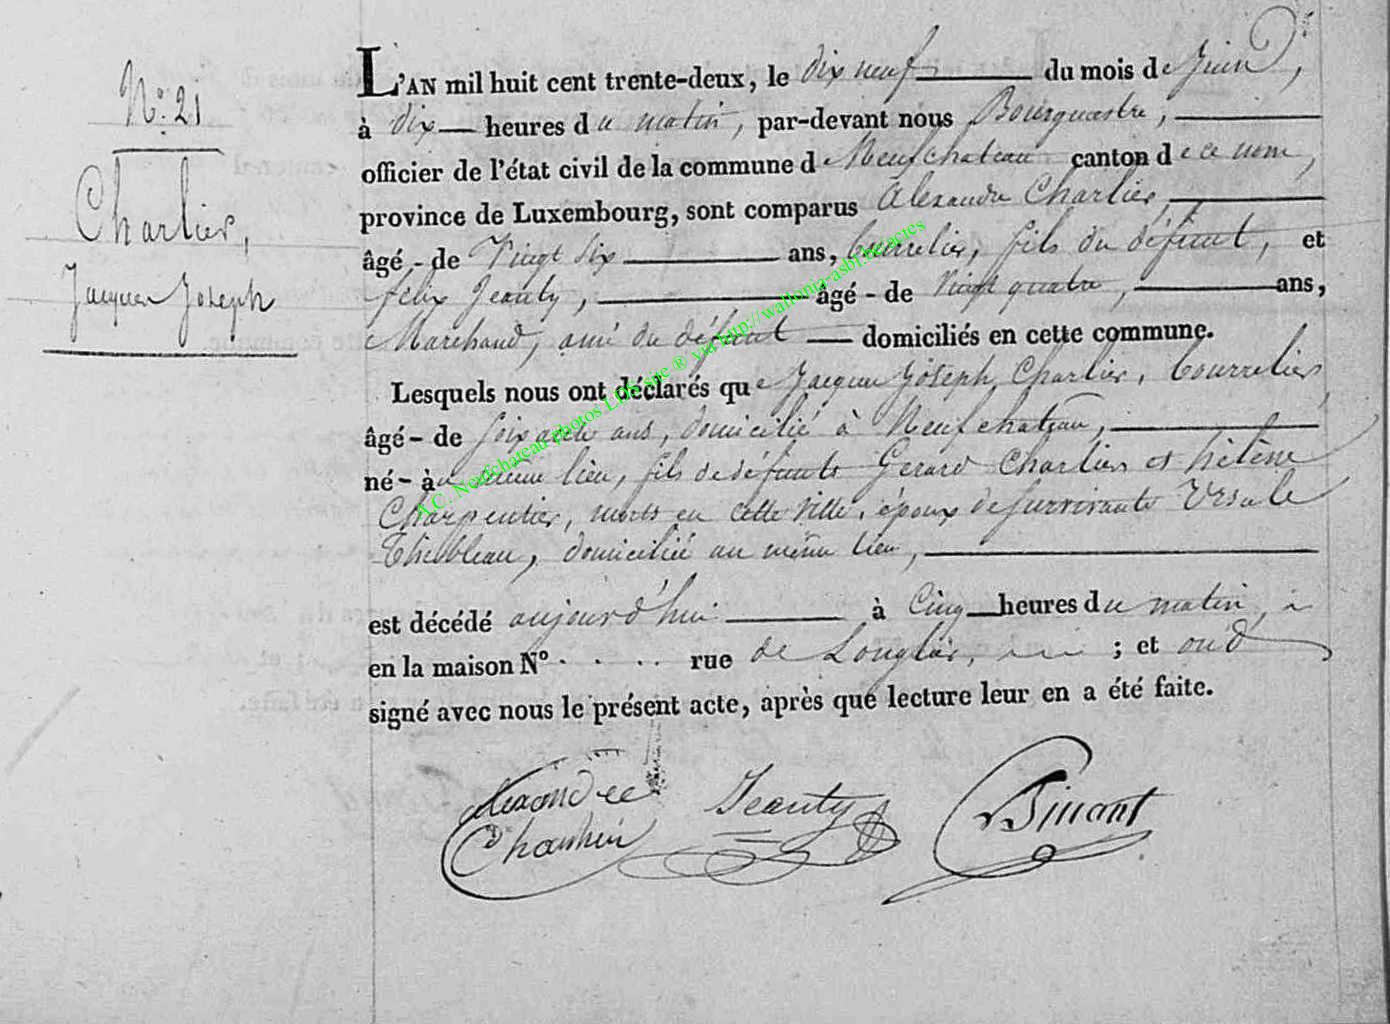 N.° 21
Charlier,
Jacques Joseph
L'AN mil huit cent trente-deux, le dix neuf du mois de Juin,
à dix heures du matin, par-devant nous Bourgmestre,
officier de l'état civil de la commune de Neufchateau canton de ce nom,
province de Luxembourg, sont comparus Alexandre Charlier,
âgé - de Vingt six ans, bourrelier, fils du défunt, et
félix Jeanty, âgé - de Vingt quatre, ans,
Marchand, ami du défunt domiciliés en cette commune.
Lesquels nous ont déclarés que Jacques Joseph Charlier, bourrelier,
âgé - de soixante ans, domicilié à Neufchateau,
né - au même lieu, fils de défunts Gerard Charlier et hélène
Charpentier, morts en cette ville, époux de survivante Ursule
domiciliée au même lieu,
est décédé aujourd'hui à Cinq heures du matin,
en la maison N° . . . . rue de Longlier, ; et ont
signé avec nous le présent acte, après que lecture leur en a été faite.
Alexandre
Charlier
Jeanty
A.C. Neufchateau photos LDS site ® via http://wallonia-asbl.be/actes